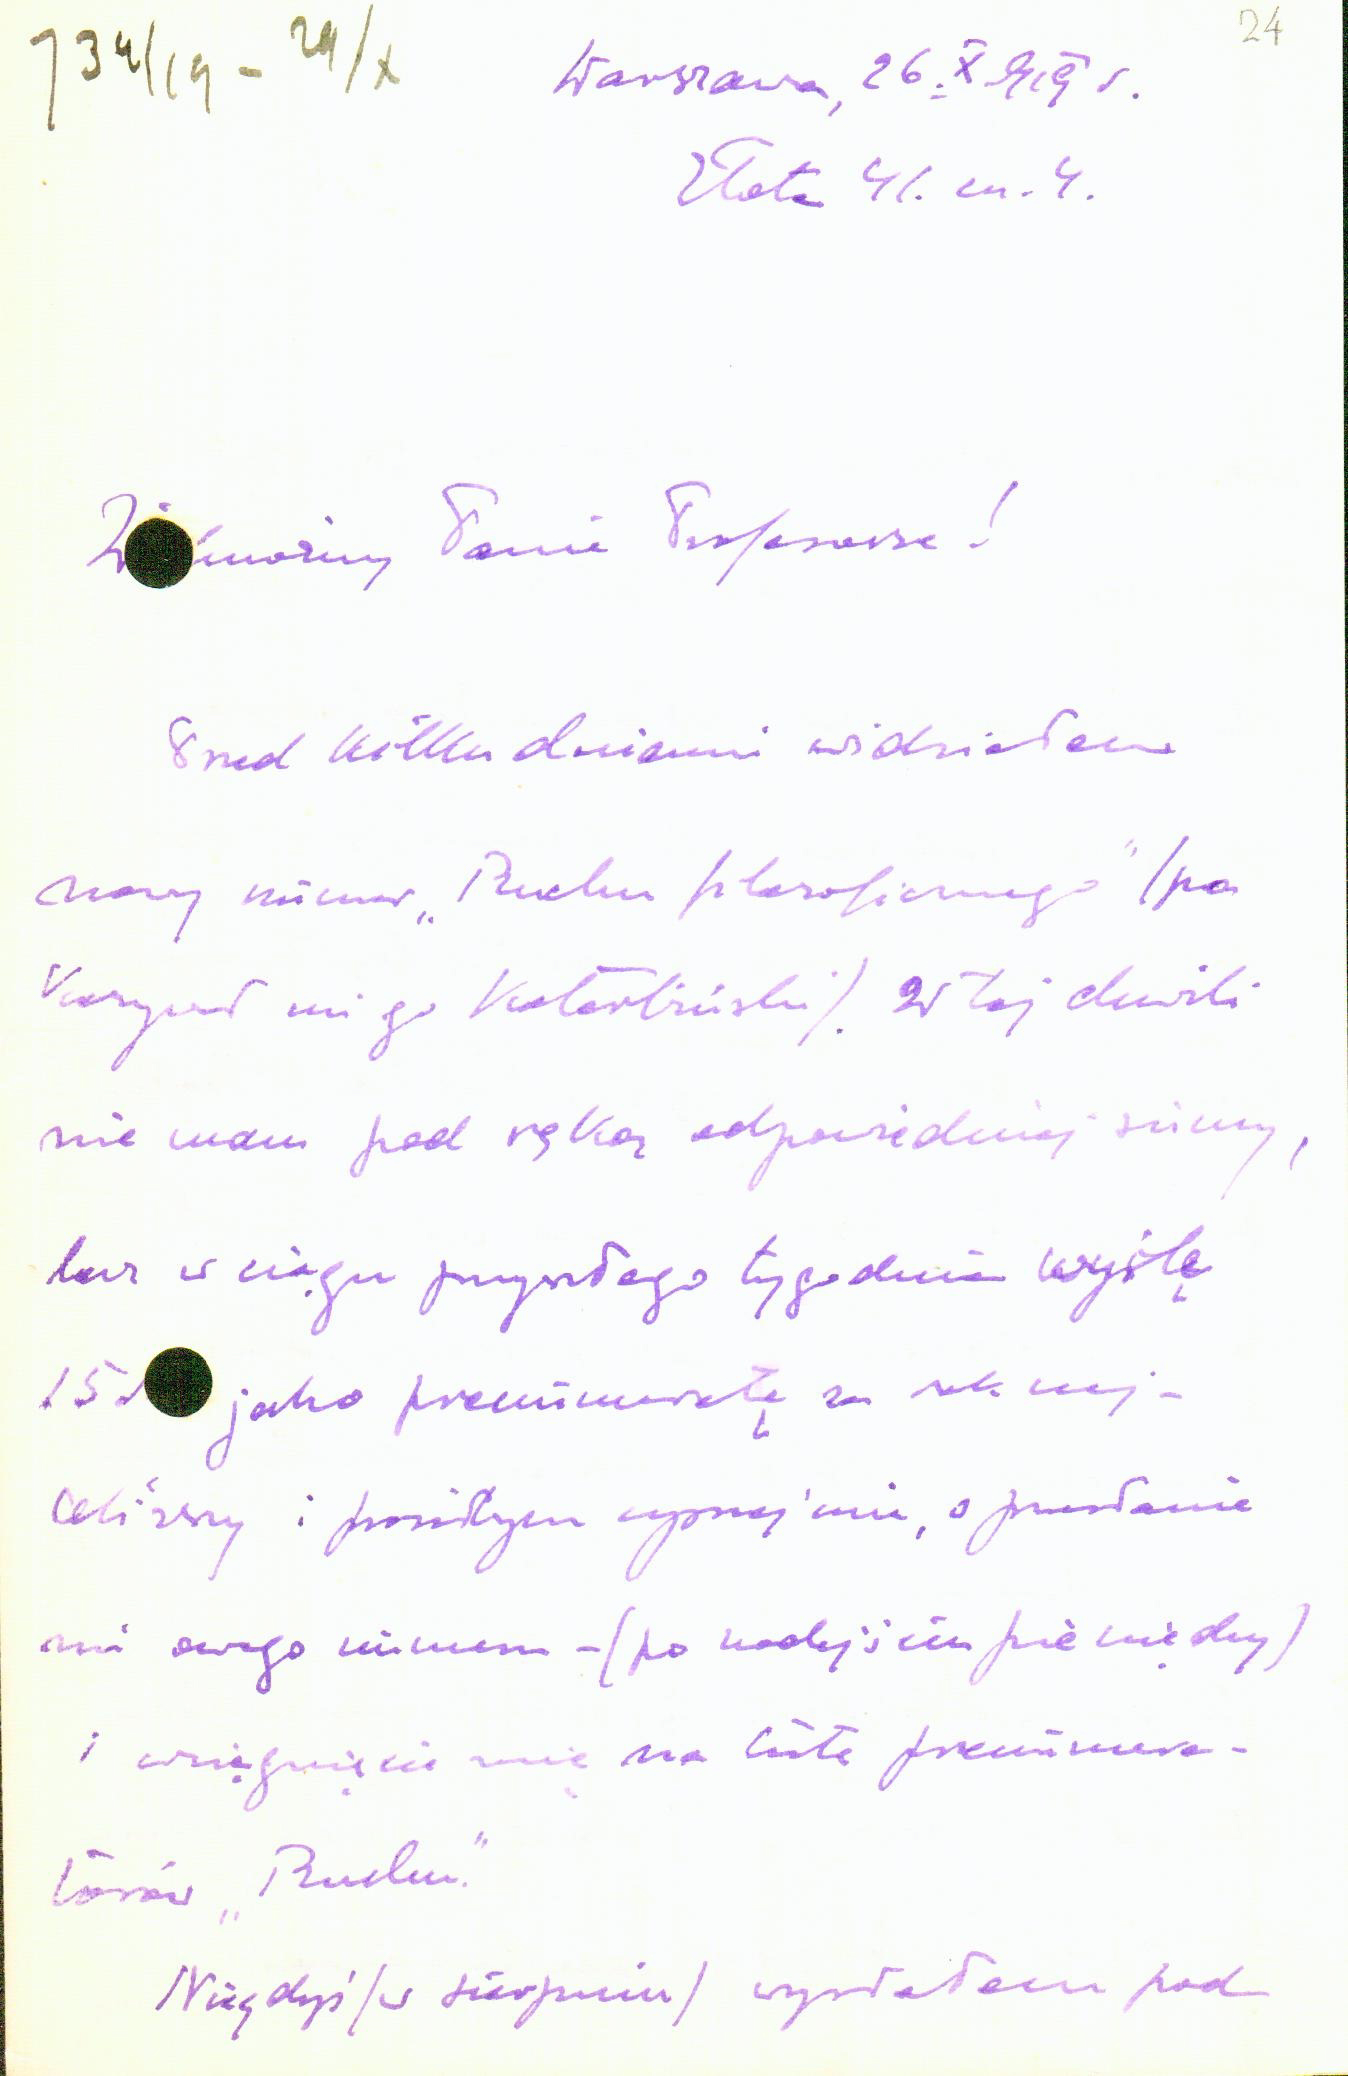 24
734/19 - 29/X
Warszawa, 26. X 1919 r.
Złota 41. m. 4.
Wielmożny Panie Profesorze!
Przed kilku dniami widziałem
nowy numer „Ruchu filozoficznego" (po
kazywał mi go Kotarbiński). W tej chwili
nie mam pod ręką odpowiedniej sumy,
lecz w ciągu przyszłego tygodnia wyślę
15 jako prenumeratę za rok naj-
bliższy i prosiłbym uprzejmie, o przesłanie
mi owego numeru - (po nadejściu pieniędzy)
i wciągnięcie mię na listę prenumera-
torów „Ruchu."
Niegdyś (w sierpniu) wysłałem pod